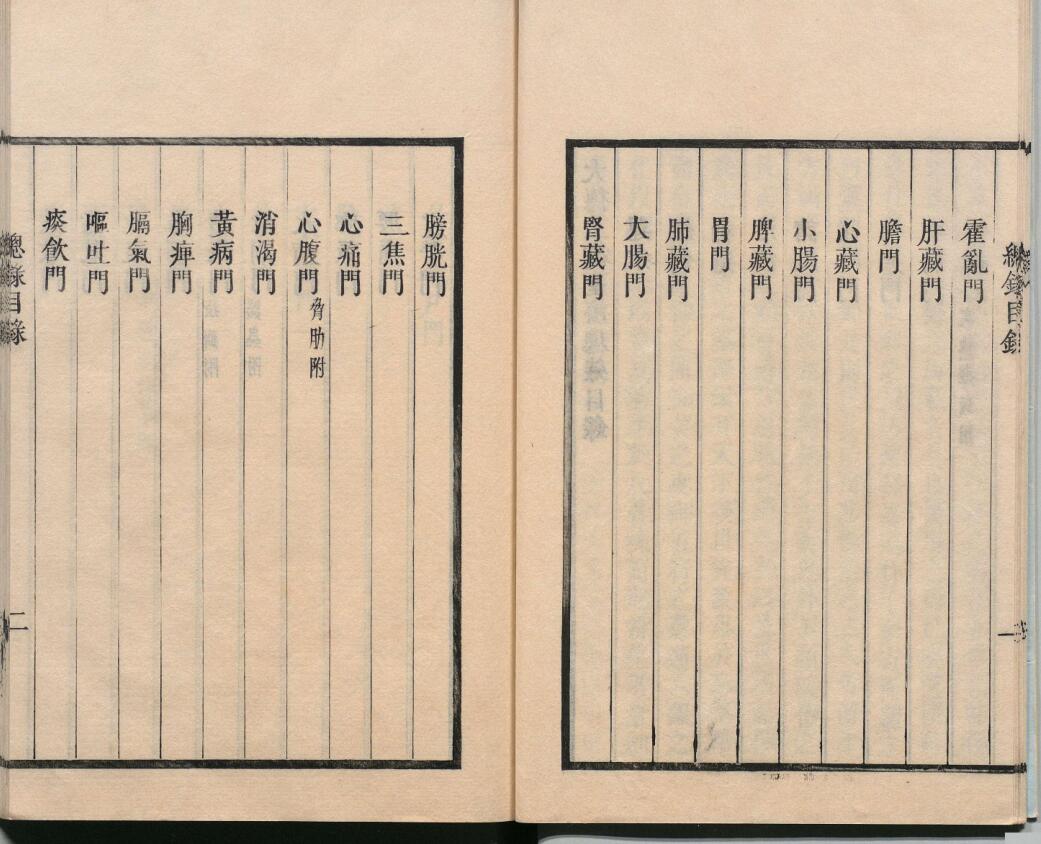 霍亂門
肝藏門
膽門
心藏門
小腸門
脾藏門
胃門
肺藏門
大腸門
腎藏門
總錄目錄
一
膀胱門
三焦門
心痛門
心腹門 脅肋附
消渴門
黃病門
胸痺門
膈氣門
嘔吐門
痰飲門
總錄目錄
二